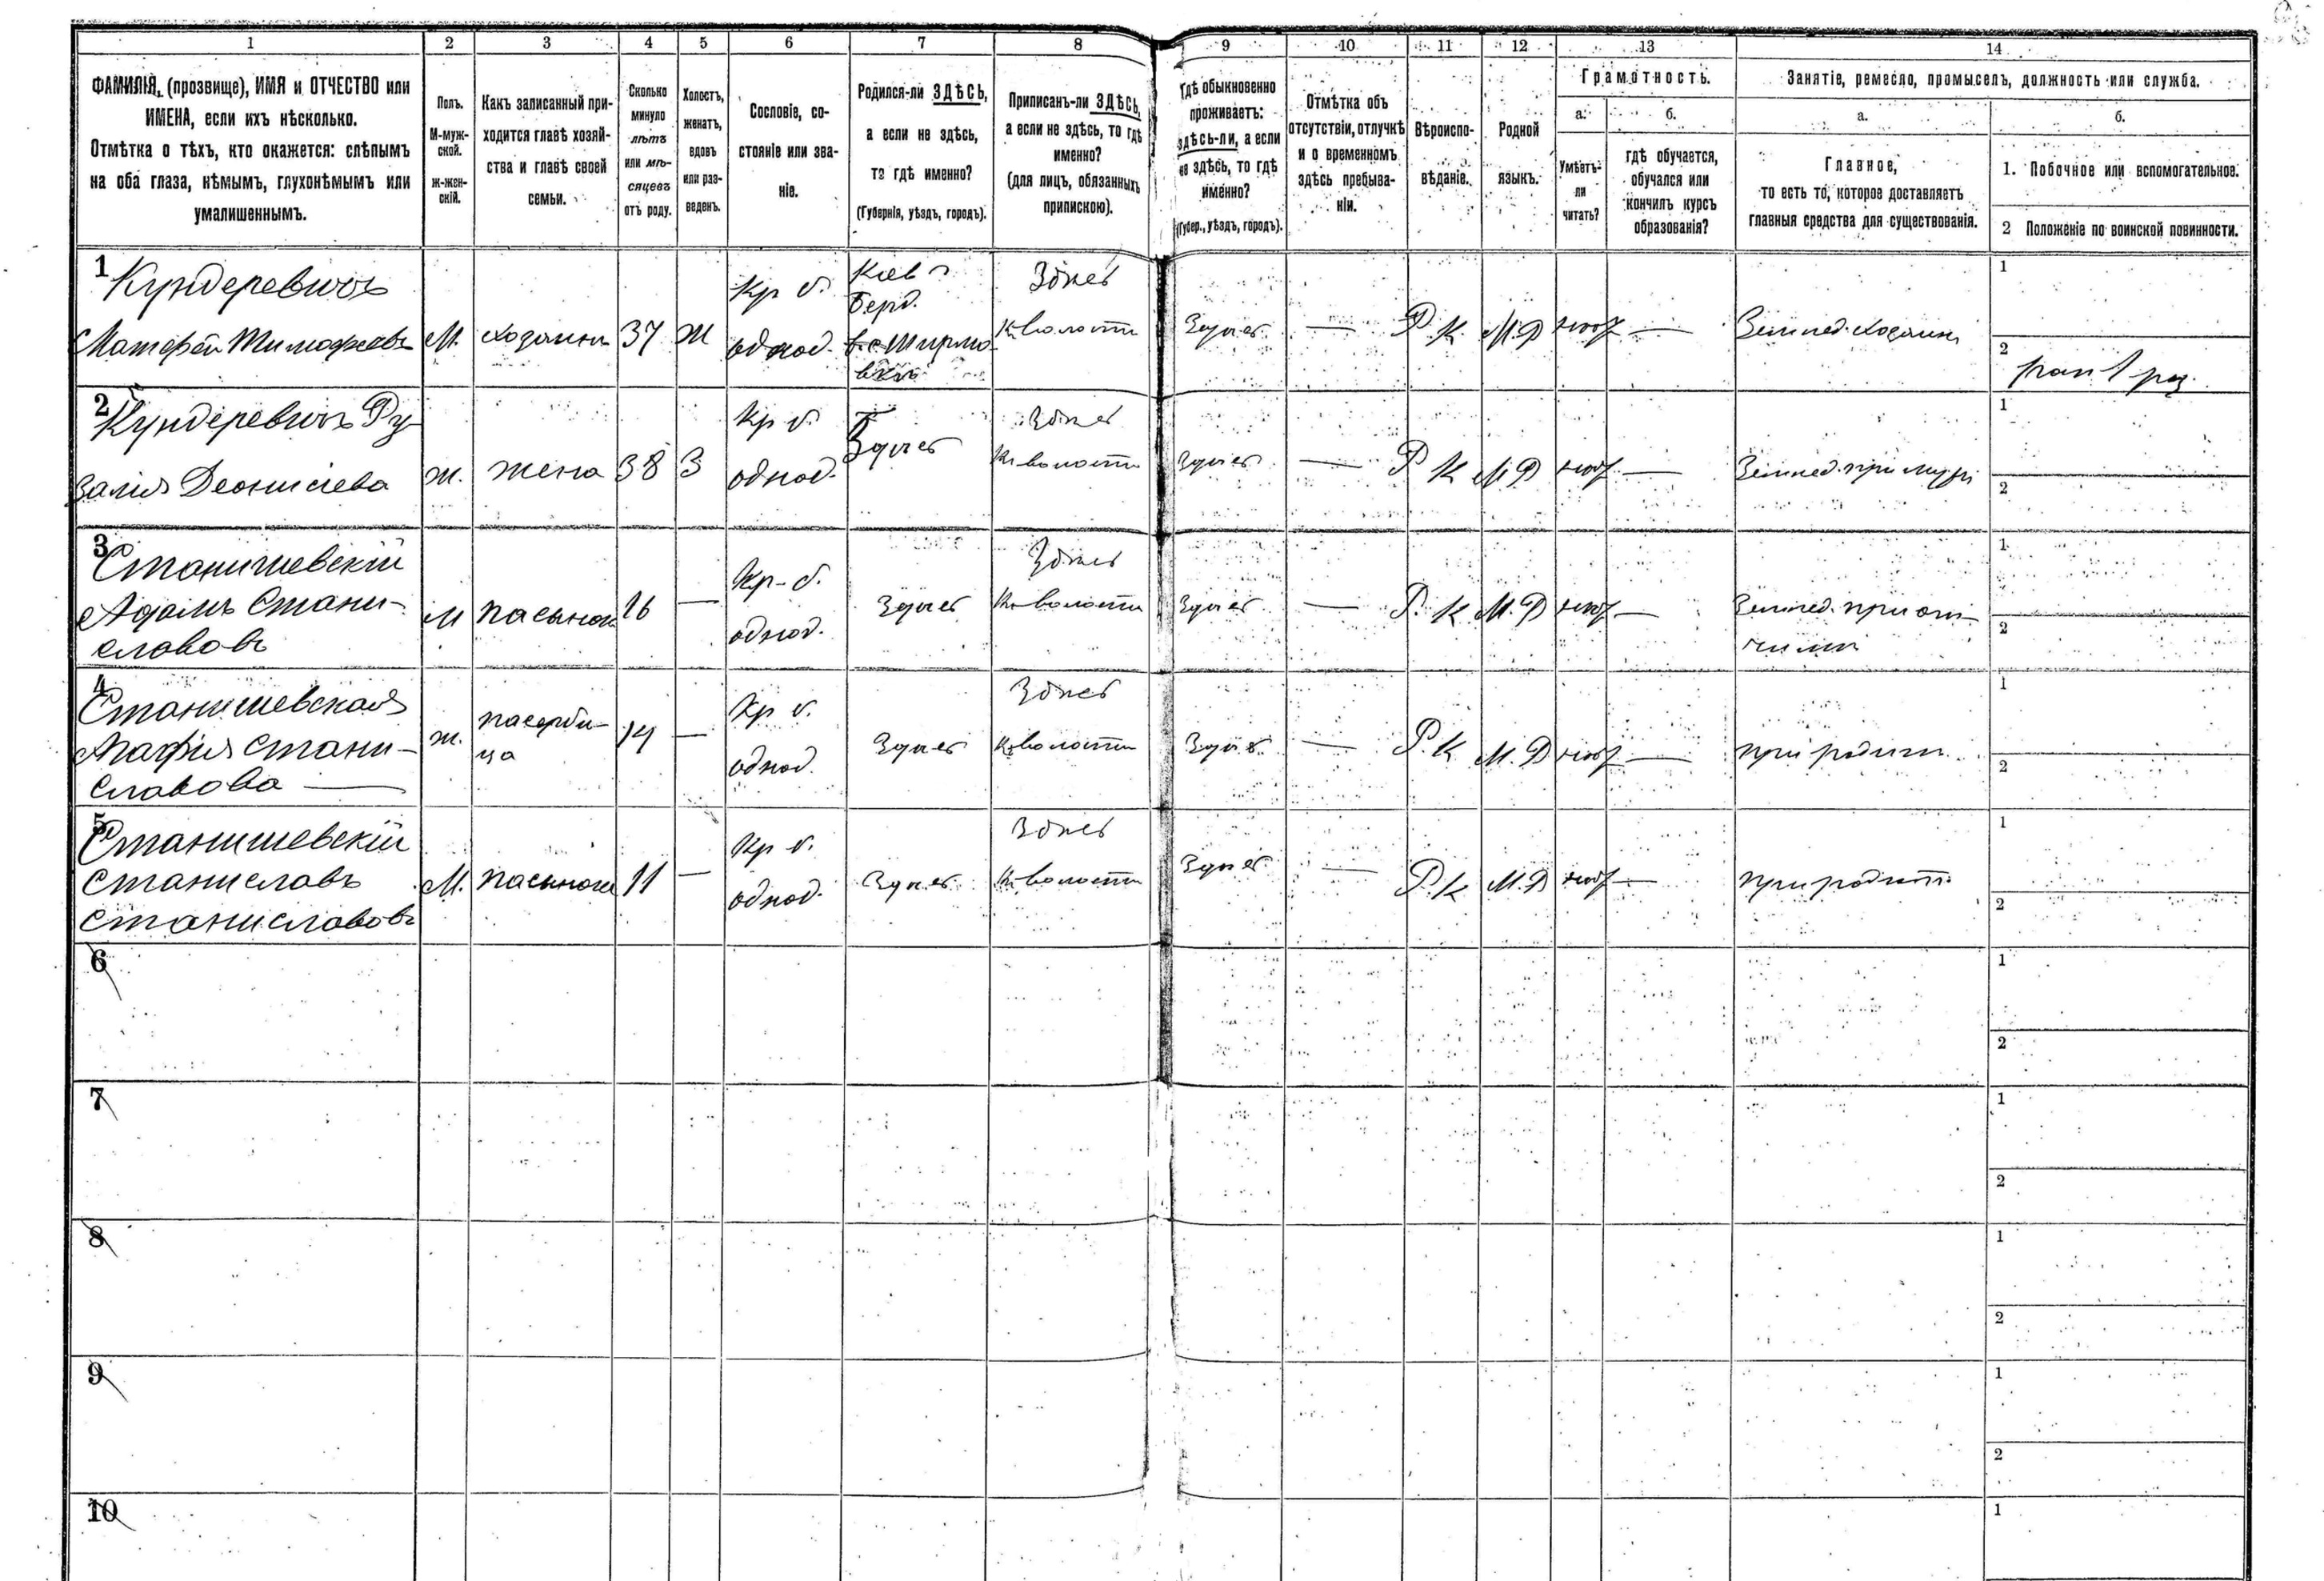 1 2 3 4 5 6 7 8 9 10 11 12 13 14
ФАМИЛІЯ, (прозвище), ИМЯ и ОТЧЕСТВО или
ИМЕНА, если ихъ нѣсколько.
Отмѣтка о тѣхъ, кто окажется: слѣпымъ
на оба глаза, нѣмымъ, глухонѣмымъ или
умалишеннымъ.
Полъ.
М-муж-
ской.
Ж-жен-
скій.
Какъ записанный при-
ходится главѣ хозяй-
ства и главѣ своей
семьи.
Сколько
минуло
лѣтъ
или мѣ-
сяцевъ
отъ роду.
Холостъ,
женатъ,
вдовъ
или раз-
веденъ.
Сословіе, со-
стояніе или зва-
ніе.
Родился-ли ЗДѢСЬ,
а если не здѣсь,
то гдѣ именно?
(Губернія, уѣздъ, городъ).
Приписанъ-ли ЗДѢСЬ,
а если не здѣсь, то гдѣ
именно?
(для лицъ, обязанныхъ
припискою).
Гдѣ обыкновенно
проживаетъ:
здѣсь-ли, а если
не здѣсь, то гдѣ
именно?
(Губер., уѣздъ, городъ).
Отмѣтка объ
отсутствіи, отлучкѣ
и о временномъ
здѣсь пребыва-
ніи.
Вѣроиспо-
вѣданіе.
Родной
языкъ.
Грамотность.
а.
Умѣетъ-
ли
читать?
б.
гдѣ обучается,
обучался или
кончилъ курсъ
образованія?
Занятіе, ремесло, промыселъ, должность или служба.
а.
Главное,
то есть то, которое доставляетъ
главныя средства для существованія.
б.
1. Побочное или вспомогательное.
2 Положеніе по воинской повинности.
1
Кундеревичъ
Матфей Тимофеевъ
М.
хозяинъ
37
Ж
Кр б.
однод.
Кіев
Берд.
Ширмо-
вкѣ
Здѣсь
К волости
Здѣсь
—
Р. К.
М.Р
нѣтъ
—
Землед. хозяинъ
1
2
рат 1 раз.
2
Кундеревичъ Ру
залія Деонисіева
ж.
жена
38
З
Кр б.
однод.
Здѣсь
Здѣсь
К волости
Здѣсь
—
Р К
М Р
нѣтъ
—
Землед. при мужѣ
1
2
3
Станишевскій
Адамъ Стани-
славовъ
М
пасынок
16
—
Кр-б.
однод.
Здѣсь
Здѣсь
К волости
Здѣсь
—
Р. К
М. Р
нѣтъ
—
Землед. при от-
чимѣ
1
2
4
Станишевская
Стани-
славова —
ж.
пасерби-
ца
14
—
Кр б.
однод.
Здѣсь
Здѣсь
К волости
Здѣсь
—
Р. К
М. Р
нѣтъ
—
при родит
1
2
5
Станишевскій
Станиславъ
Станиславовъ
М.
пасынок
11
—
Кр б.
однод.
Здѣсь
Здѣсь
К волости
Здѣсь
—
Р. К
М. Р
нѣтъ
—
при родит.
1
2
6
1
2
7
1
2
8
1
2
9
1
2
10
1